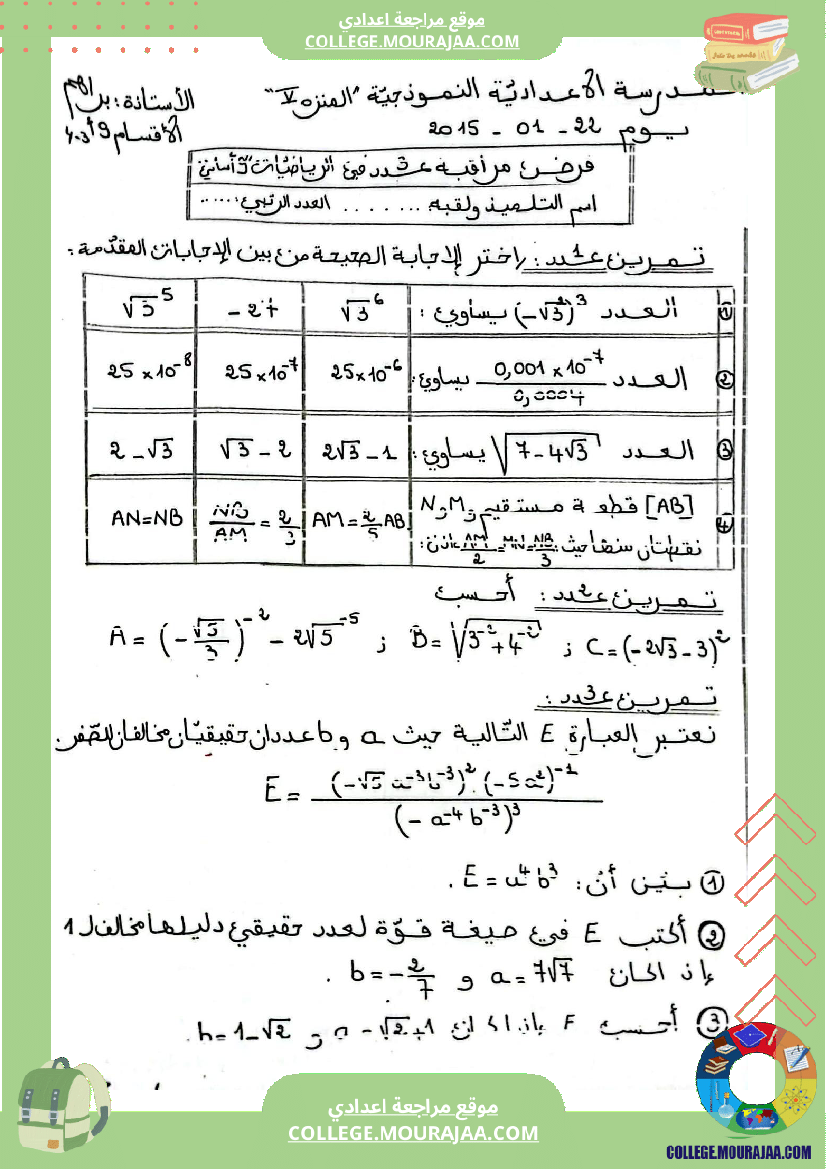 موقع مراجعة اعدادي
COLLEGE.MOURAJAA.COM
مدرسة الاعداديّة النموذجيّة "المنزه V" الأستاذة:
يوم 22 - 01 - 2015 الأقسام
فرض مراقبة عـ3ـدد في الرياضيات 9 أساسي
اسم التلميذ ولقبه ....... العدد الرتبي: ......
تمرين عـ1ـدد: اختر الإجابة الصحيحة من بين الإجابات المقدّمة:
① العدد (-√3²)³ يساوي: | √3⁶ | -27 | √3⁵
② العدد (0,001 × 10⁻⁷)/(0,0004) يساوي: | 25×10⁻⁶ | 25×10⁻⁷ | 25×10⁻⁸
③ العدد √(7-4√3) يساوي: | 2√3-1 | √3-2 | 2-√3
④ [AB] قطعة مستقيم و M و N | AM = 2/5 AB | NB/AM = 2/3 | AN=NB
نقطتان منها حيث AM/2 = MN/ = NB/3 إذن:
تمرين عـ2ـدد: أحسب
A = (-√5/3)⁻² - 2√5⁻⁵ ; B = √(3⁻²+4⁻²) ; C = (-2√3-3)²
تمرين عـ3ـدد:
نعتبر العبارة E التّالية حيث a و b عددان حقيقيّان مخالفان للصّفر
E = ((-√5 a⁻³b⁻³)² . (-5a²)⁻¹)/((-a⁻⁴b⁻³)³)
① بيّن أنّ: E = a⁴b³.
② أكتب E في صيغة قوّة لعدد حقيقي دليلها مخالف لـ 1
إذا كان a=7√7 و b=-2/7.
③ أحسب E إذا كان a = √2+1 و b=1-√2.
موقع مراجعة اعدادي
COLLEGE.MOURAJAA.COM
COLLEGE.MOURAJAA.COM